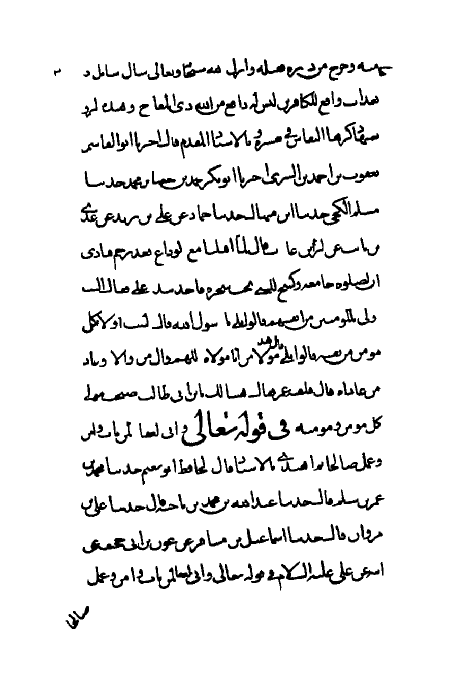 وخرج من دبره فقتله وانزل الله سبحانه وتعالى سال سائل
بعذاب واقع للكافرين ليس له دافع من الله ذي المعارج
النقاش في تفسيره بالاسناد المقدم قال اخبرنا ابو القاسم
يعقوب بن احمد بن السري اخبرنا ابو بكر بن محمد حدثنا
مسلم الكجي حدثنا ابن منهال حدثنا حماد عن علي بن زيد عن عدي
بن ثابت عن البراء بن عازب قال لما اقبلنا مع الوداع بغدير خم فنادى
ان الصلوه جامعه وكسح للنبي تحت شجره فاخذ بيد علي فقال الست
اولى بالمومنين من انفسهم قالوا بلى يا رسول الله قال الست اولا بكل
مومن من نفسه قالوا بلى قال هذا مولا من انا مولاه اللهم وال من والاه وعاد
من عاداه قال فلقيه عمر فقال هنيا لك يا ابن ابي طالب اصبحت مولى
كل مومن ومومنه في قوله تعالى واني لغفار لمن تاب وامن
وعمل صالحا ثم اهتدى بالاسناد قال الحافظ ابو نعيم حدثنا محمد بن
عمر بن سلم قال حدثنا عبد الله بن محمد بن ناجيه قال حدثنا علي بن
مروان قال حدثنا اسماعيل بن مسافر عن عون بن ابي جحيفه عن
ابيه عن علي عليه السلام في قوله تعالى واني لغفار لمن تاب وامن وعمل
صالحا